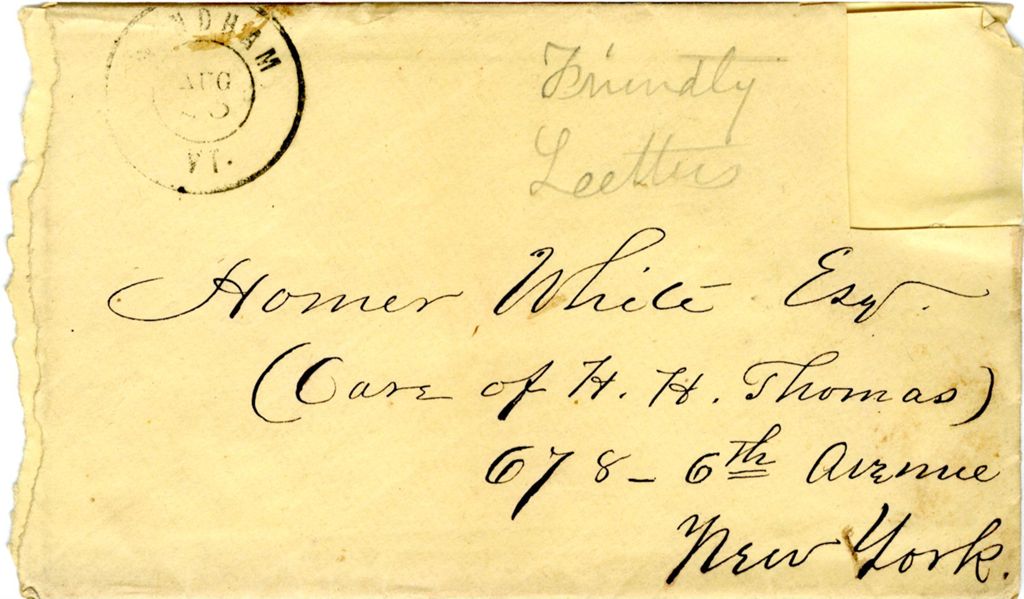 NDHAM
AUG
VT.
Friendly
Letters
Homer White Esq.
(Care of H. H. Thomas)
678 - 6th Avenue
New York.